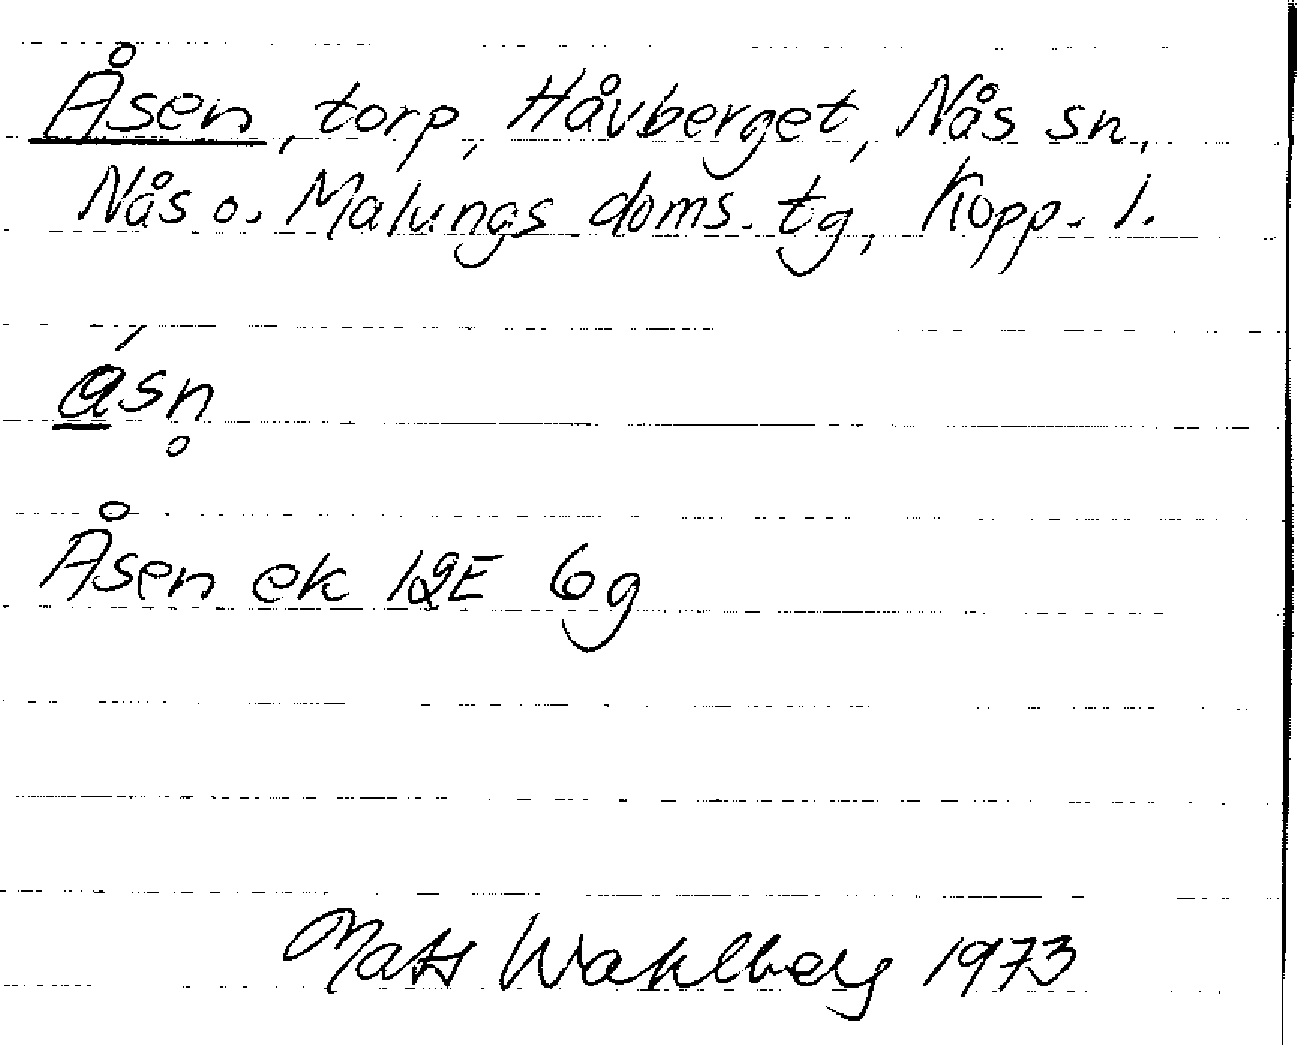 Åsen, torp, Håvberget, Nås sn,
Nås o. Malungs doms. tg, Kopp. l.
á̲sn̥
Åsen ek 12E 6g
Mats Wahlberg 1973